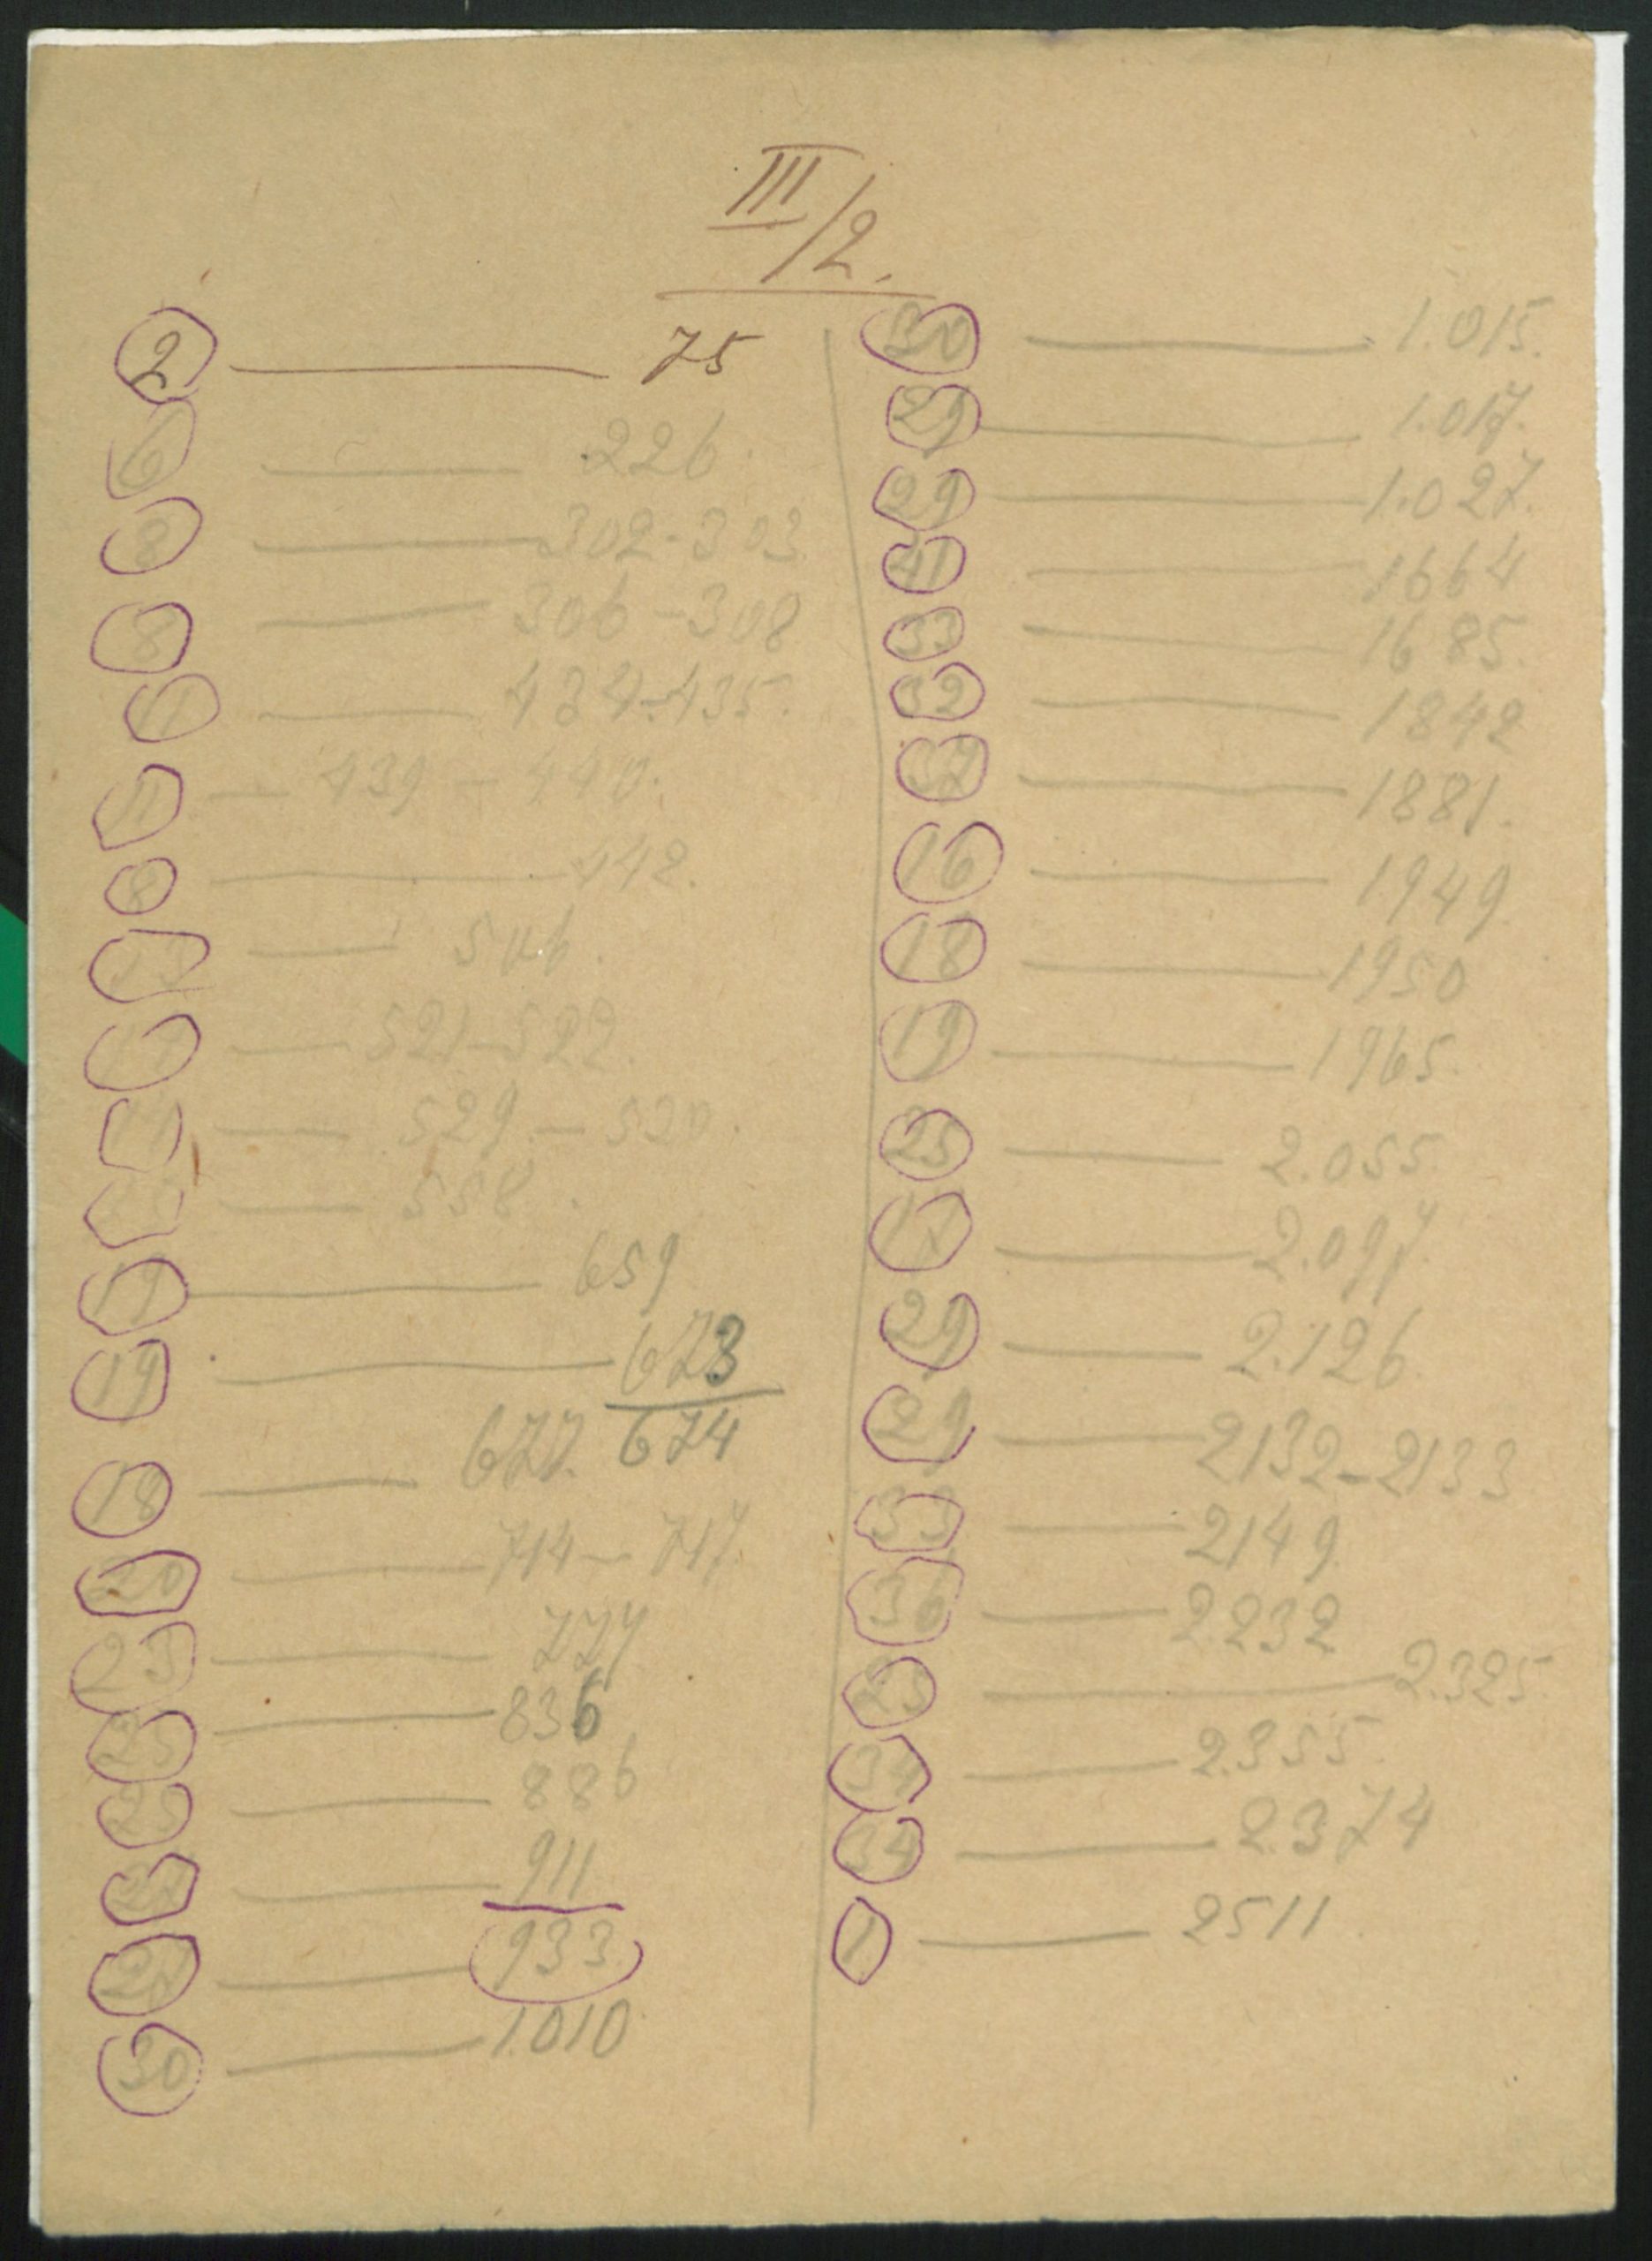 III/2.
2 — 75
6 — 226.
8 — 302-303
8 — 306-308
11 — 434-435.
11 — 439 - 440.
8 — 442.
— 506.
— 521-522.
— 529 - 520.
— 558.
19 — 659
19 — 673
674
18 — 677.
20 — 714 - 717.
23 — 777
25 — 836
25 — 886
27 — 911
27 — 933
30 — 1.010
30 — 1.015.
29 — 1.017.
29 — 1.027.
41 — 1664
33 — 1685.
32 — 1842
37 — 1881.
16 — 1949
18 — 1950
19 — 1965.
25 — 2.055
17 — 2.097.
29 — 2.126.
29 — 2132-2133
33 — 2149
36 — 2232
25 — 2.325.
34 — 2.355.
34 — 2374
1 — 2511.